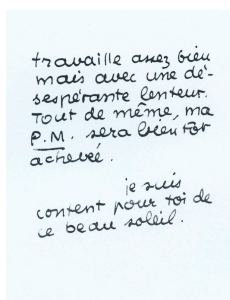 travaille assez bien
mais avec une dé-
sespérante lenteur.
Tout de même, ma
P.M. sera bientôt
achevée.
je suis
content pour toi de
ce beau soleil.